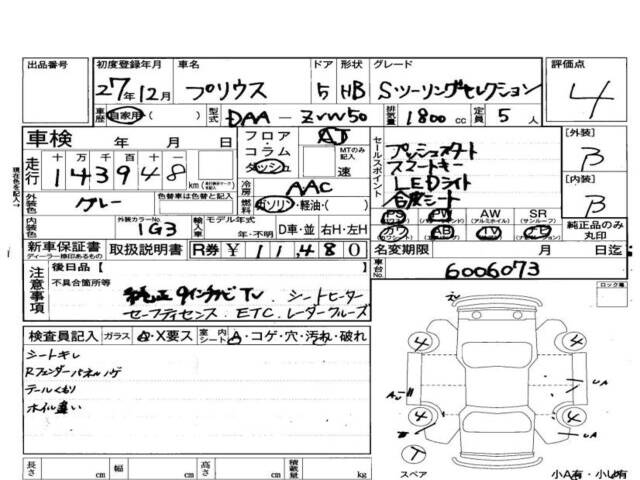 出品番号 初度登録年月 車名 ドア 形状 グレード 評価点
27年12月 プリウス 5 HB S・ツーリングセレクション 4
車歴 自家用 ( ) 型式 DAA-ZVW50 排気量 1800cc 定員 5人
車検 年 月 日
フロア・コラム ダッシュ AT MTのみ記入 速
セールスポイント
プッシュスタート
スマートキー
LEDライト
合皮シート
[外装] B
[内装] B
現在色を記入→
走行 十万千百十一 143948 km
冷房 AAC
外装色 グレー 色替車は色替と記入
燃料 ガソリン・軽油・( )
PS PW AW (アルミホイル) SR (サンルーフ)
AB TV
純正品のみ丸印
内装色 外装カラーNo. 1G3 輸入車 モデル年式 年・不明 D車・並 右H・左H
新車保証書 ディーラー捺印あるもの 取扱説明書 R券 ¥11,480
名変期限 月 日迄
車台No. 6006073
ロック風
注意事項 後日品 [ ]
不具合箇所等
純正9インチナビTV、シートヒーター
セーフティセンス、ETC、レーダークルーズ
検査員記入 ガラス A・X要ス 室内シート A・コゲ・穴・汚れ・破れ
シートキレ
Rフェンダーパネルハゲ
テールくもり
ホイル違い
4 4
4 4
A UA
UA
T
スペア
小A有・小U有
長さ cm 幅 cm 高さ cm 積載量 kg